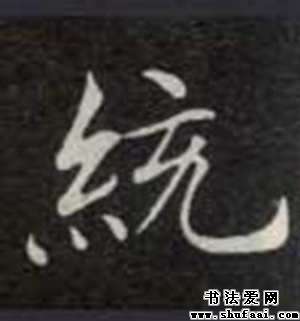 統
书法爱网
www.shufaai.com